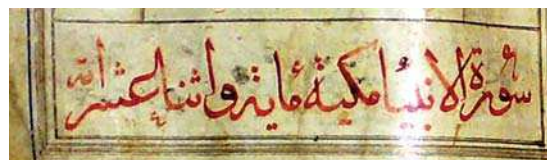 سورة الانبيا مكية ماية واثنا عشر اية